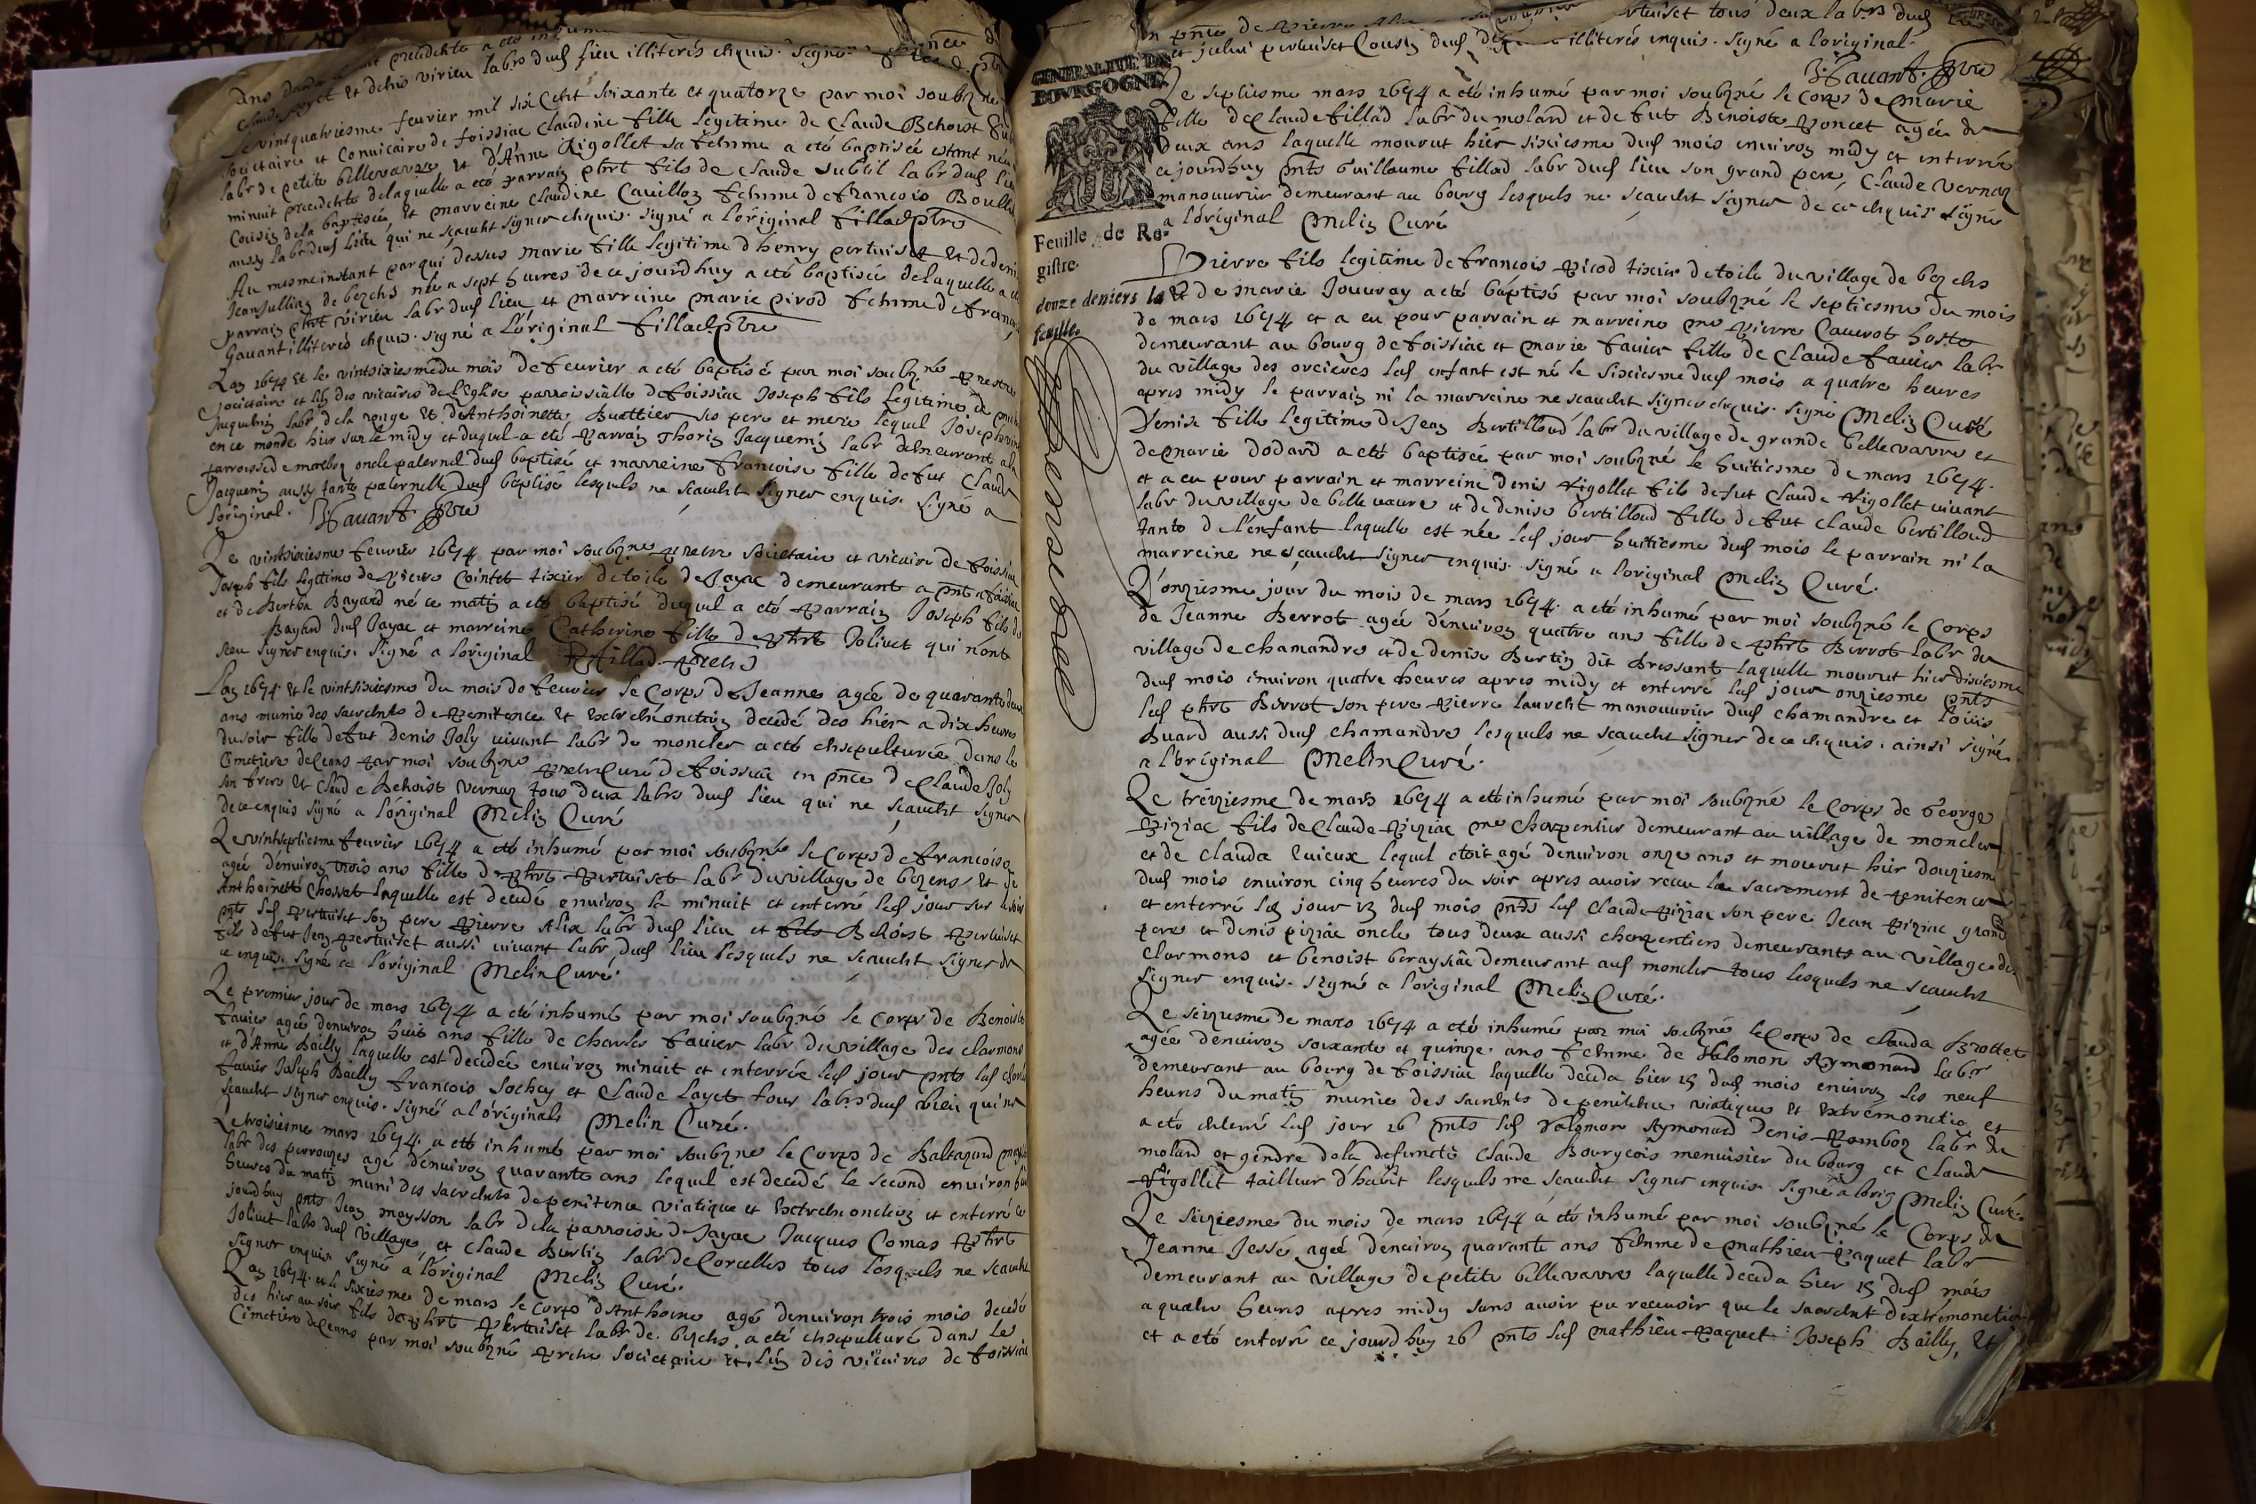 Claude payet et denis virieu labrs dud lieu illiterés enquis. signé
Le vintquatriesme fevrier mil six cent soixante et quatorze par moi soubzné
societaire et convicaire de foissiac Claudine fille legitime de Claude Benoist
labr de petite bellevavre et d'Anne Rigollet sa femme a eté baptisée estant née
minuit precedente de laquelle a eté parrain phrt fils de Claude subtil labr dud lieu
Cousin de la baptisée et marreine Claudine Cavillon femme de francois Boulle
aussy labr dud lieu qui ne scavent signer enquis. signé a l'original fillad ptre
Au mesme instant par qui dessus marie fille legitime d'henry pertuiset et de denise
Jean Jullian de bezens née a sept heures de ce jourd'huy a eté baptisée de laquelle a eté
parrain phrt virieu labr dud lieu et marreine marie pirod femme de francois
Gavant illiterés enquis. signé a l'original fillad ptre
L'an 1674 et le vintsixiesme du mois de fevrier a eté baptisé par moi soubzné prestre
societaire et l'un des vicaires de l'eglise parroissialle de foissiac Joseph fils legitime de
Jaquemin labr de la rouge et d'Anthoinette Buattier ses pere et mere lequel Joseph vint
en ce monde hier sur le midy et duquel a eté parrain Thorin Jacquemin labr demeurant a la
parroisse de marbos oncle paternel dud baptisé et marreine francoise fille de fut Claude
Jacquemin aussy tante paternelle dud baptisé lesquels ne scavent signer enquis. signé a
l'original. Havant. ptre
Le vintsixiesme fevrier 1674 par moi soubzné prestre societaire et vicaire de foissiac
Joseph fils legitime de Pierre Cointet tixier de toile de Jayac demeurant a pnt a foissiac
et de Bertha Bayard né ce matin a eté baptisé duquel a eté parrain Joseph fils de
Bayard dud Jayac et marreine Catherine fille de phrt Jolivet qui n'ont
sceu signer enquis. signé a l'original P fillad. prestre
L'an 1674 et le vintsixiesme du mois de fevrier le Corps de Jeanne agée de quarante deux
ans munie des sacrements de penitence et extremeonction decedé des hier a dix heures
du soir fille de fut denis Joly vivant labr de moncler a eté ensepulturée dans le
Cimetiere de ceans par moi soubzné prestre Curé de foissiac en pnce de Claude Joly
son frere et Claude Benoist vernaz tous deux labrs dud lieu qui ne scavent signer
de ce enquis signé a l'original Melin Curé
Le vintseptiesme fevrier 1674 a eté inhumé par moi soubzné le Corps de francoise
agée d'environ trois ans fille de phrt pertuiset labr du village de bezens et de
Anthoinette Chossat laquelle est decedé environ la minuit et enterré led jour sur le soir
pnts led pertuiset son pere Pierre Alix labr dud lieu et Benoist pertuiset
fils de fut Jean pertuiset aussi vivant labr dud lieu lesquels ne scavent signer de
ce enquis. signé a l'original Melin Curé.
Le premier jour de mars 1674 a eté inhumé par moi soubzné le Corps de Benoiste
favier agée d'environ huit ans fille de charles favier labr du village des clarmons
et d'Anne Bailly laquelle est decedée environ minuit et enterrée led jour pnts led charles
favier Joseph Bailly francois Sochay et Claude Layet tous labrs dud lieu qui ne
scavent signer enquis. signé a l'original. Melin Curé.
Le troisiesme mars 1674. a eté inhumé par moi soubzné le Corps de Baltazard
labr des perrouzes agé d'environ quarante ans lequel est decedé le second environ
heures du matin muni des sacrements de penitence viatique et extremeonction et enterré ce
jourd'huy pnts Jean maysson labr de la parroisse de Jayac Jacques Comas phrt
Jolivet labr dud village et Claude Burtin labr de Corcelles tous lesquels ne scavent
signer enquis signé a l'original Melin Curé.
L'an 1674. et le sixiesme de mars le corps d'Anthoine agé d'environ trois mois decedé
des hier au soir fils de phrt pertuiset labr de bezens a eté ensepulturé dans le
Cimetiere de ceans par moi soubzné prestre societaire et l'un des vicaires de foissiac
en pnce de Pierre
et julien pertuiset Cousin dud illiterés enquis. signé a l'original.
Havant. ptre
GENERALITE DE
BOVRGOGNE
Le septiesme mars 1674 a eté inhumé par moi soubzné le Corps de marie
fille de Claude fillad labr du molard et de fut Benoiste poncet agée de
deux ans laquelle mourut hier sixiesme dud mois environ midy et enterrée
ce jourd'huy pnts Guillaume fillad labr dud lieu son grand pere, Claude vernaz
manouvrier demeurant au bourg lesquels ne scavent signer de ce enquis signé
a l'original Melin Curé
Feuille de Re-
gistre.
douze deniers la
feuille.
Pierre fils legitime de francois picod tixier de toile du village de bezens
et de marie Jouvray a eté baptisé par moi soubzné le septiesme du mois
de mars 1674 et a eu pour parrain et marreine me pierre Cauerot hoste
demeurant au bourg de foissiac et marie favier fille de Claude favier labr
du village des orcieres led enfant est né le sixiesme dud mois a quatre heures
apres midy le parrain ni la marreine ne scavent signer enquis. signé Melin Curé
Denise fille legitime de Jean Bertilloud labr du village de grande bellevavre et
de marie Dodard a eté baptisée par moi soubzné le huitiesme de mars 1674.
et a eu pour parrain et marreine denis Rigollet fils de fut Claude Rigollet vivant
labr du village de belle vavre et de denise bertilloud fille de fut claude bertilloud
tante de l'enfant laquelle est née led jour huitiesme dud mois le parrain ni la
marreine ne scavent signer enquis. signé a l'original Melin Curé.
L'onziesme jour du mois de mars 1674. a eté inhumé par moi soubzné le Corps
de Jeanne Berrot agée d'environ quatre ans fille de phrt Berrot labr du
village de chamandre et de denise Burtin dit Bressant laquelle mourut hier dixiesme
dud mois environ quatre heures apres midy et enterré led jour onziesme pnts
led phrt Berrot son pere pierre laurent manouvrier dud chamandre et louis
Buard aussi dud chamandre lesquels ne scavent signer de ce enquis. ainsi signé
a l'original Melin Curé.
Le treiziesme de mars 1674 a eté inhumé par moi soubzné le Corps de George
piziac fils de Claude piziac me charpentier demeurant au village de moncler
et de Clauda Vuieux lequel etoit agé d'environ onze ans et mourut hier douziesme
dud mois environ cinq heures du soir apres avoir receu le sacrement de penitence
et enterré led jour 13 dud mois pnts led Claude piziac son pere Jean piziac grand
pere et denis piziac oncle tous deux aussi charpentiers demeurants au village des
clarmons et benoist beraysiac demeurant aud moncler tous lesquels ne scavent
signer enquis. signé a l'original Melin Curé.
Le seiziesme de mars 1674 a eté inhumé par moi soubzné le Corps de Clauda Brottet
agée d'environ soixante et quinze ans femme de Salomon Aymonard labr
demeurant au bourg de foissiac laquelle deceda hier 15 dud mois environ les neuf
heures du matin munie des sacrements de penitence viatique et extremonction et
a eté enterré led jour 16 pnts led salomon Aymonard denis Rambon labr du
molard et gendre de la defuncte Claude Bourgeois menuisier du bourg et Claude
Rigollet tailleur d'habit lesquels ne scavent signer enquis. signé a l'orig Melin Curé.
Le seiziesme du mois de mars 1674 a eté inhumé par moi soubzné le Corps de
Jeanne Jessé agée d'environ quarante ans femme de mathieu paquet labr
demeurant au village de petite bellevavre laquelle deceda hier 15 dud mois
a quatre heures apres midy sans avoir pu recevoir que le sacrement d'extremonction
et a eté enterré ce jourd'huy 16 pnts led mathieu paquet Joseph Bailly, et